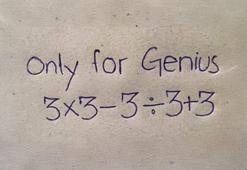 only for Genius
3×3-3÷3+3